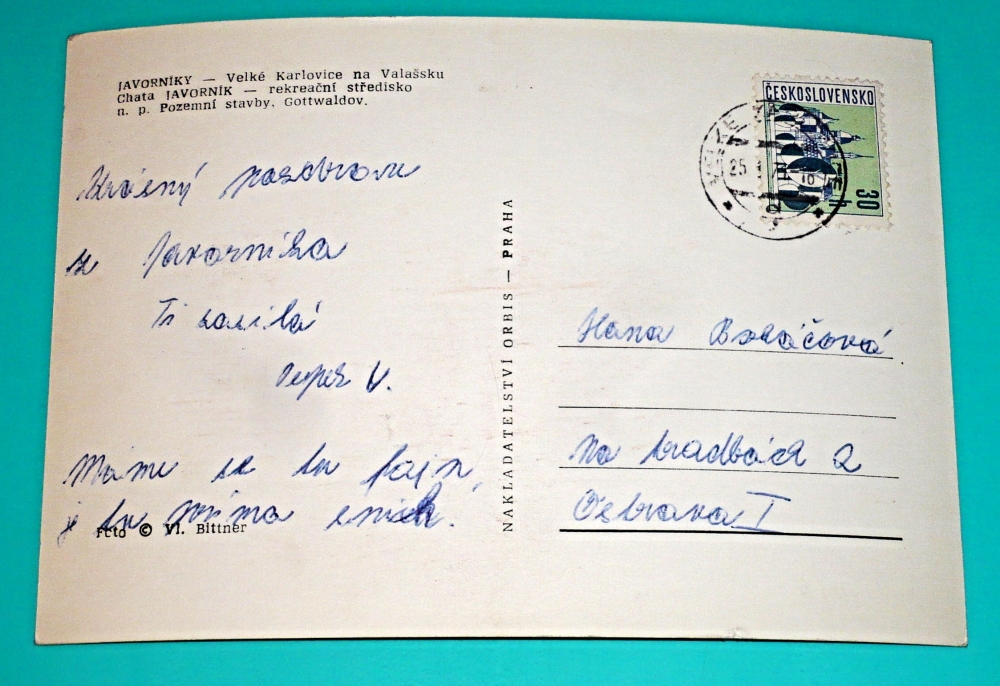 JAVORNÍKY — Velké Karlovice na Valašsku
Chata JAVORNÍK — rekreační středisko
n. p. Pozemní stavby, Gottwaldov.
Krásný pozdrav
z Javorníka
Ti zasílá
V.
Máme se tu fajn,
je tu prima sníh.
Foto © Vl. Bittner
NAKLADATELSTVÍ ORBIS — PRAHA
ČESKOSLOVENSKO
30 h
25
Hana
Na hradbách 2
Ostrava I